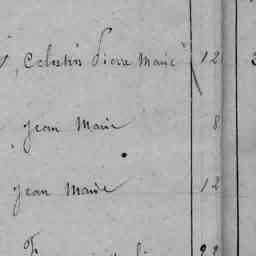 Celestin Pierre Marie 12
Jean Marie 8
Jean Marie 12
22